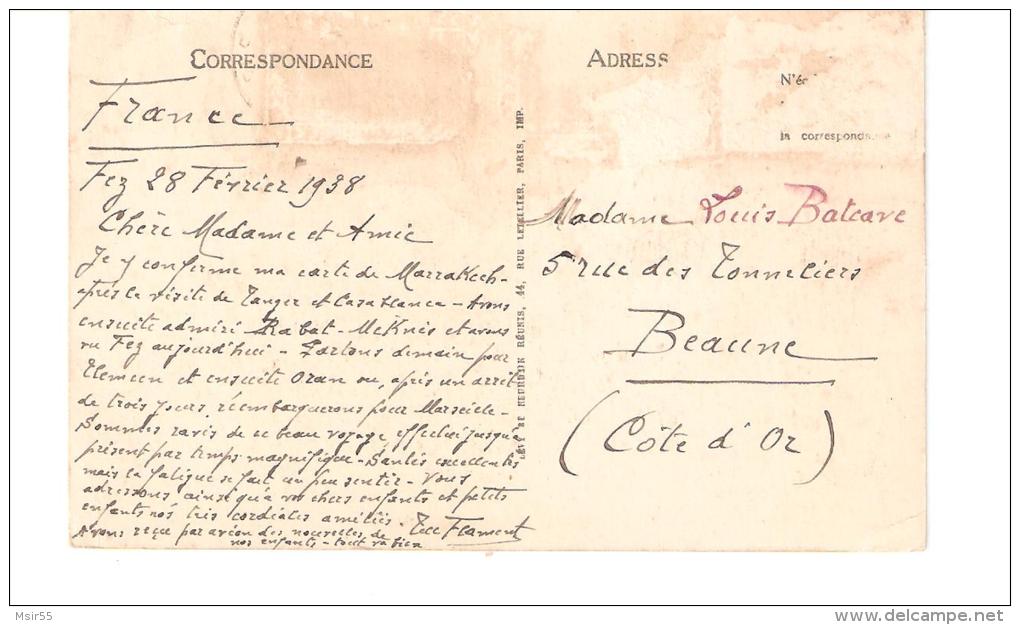 CORRESPONDANCE
France
Fez 28 Février 1938
Chère Madame et Amie
Je y confirme ma carte de Marrakech -
après la visite de Tanger et Casablanca - Avons
ensuite admiré Rabat - Meknès et avons
vu Fez aujourd'hui - Partons demain pour
Tlemcen et ensuite Oran ou, après un arrêt
de trois jours, réembarquerons pour Marseille -
Sommes ravis de ce beau voyage effectué jusqu'à
présent par temps magnifique - Santés excellentes
mais la fatigue se fait un peu sentir - Vous
adressons ainsi qu'à vos chers enfants et petits
enfants nos très cordiales amitiés. Flament
Avons reçu par avion des nouvelles de
nos enfants - tout va bien
LÉVY ET NEURDEIN RÉUNIS, 44, RUE LETELLIER, PARIS, IMP.
ADRESS
N'éc
la correspond
Madame Louis Batcave
5 rue des Tonneliers
Beaune
(Côte d'Or)
Msir55
delcampe.net